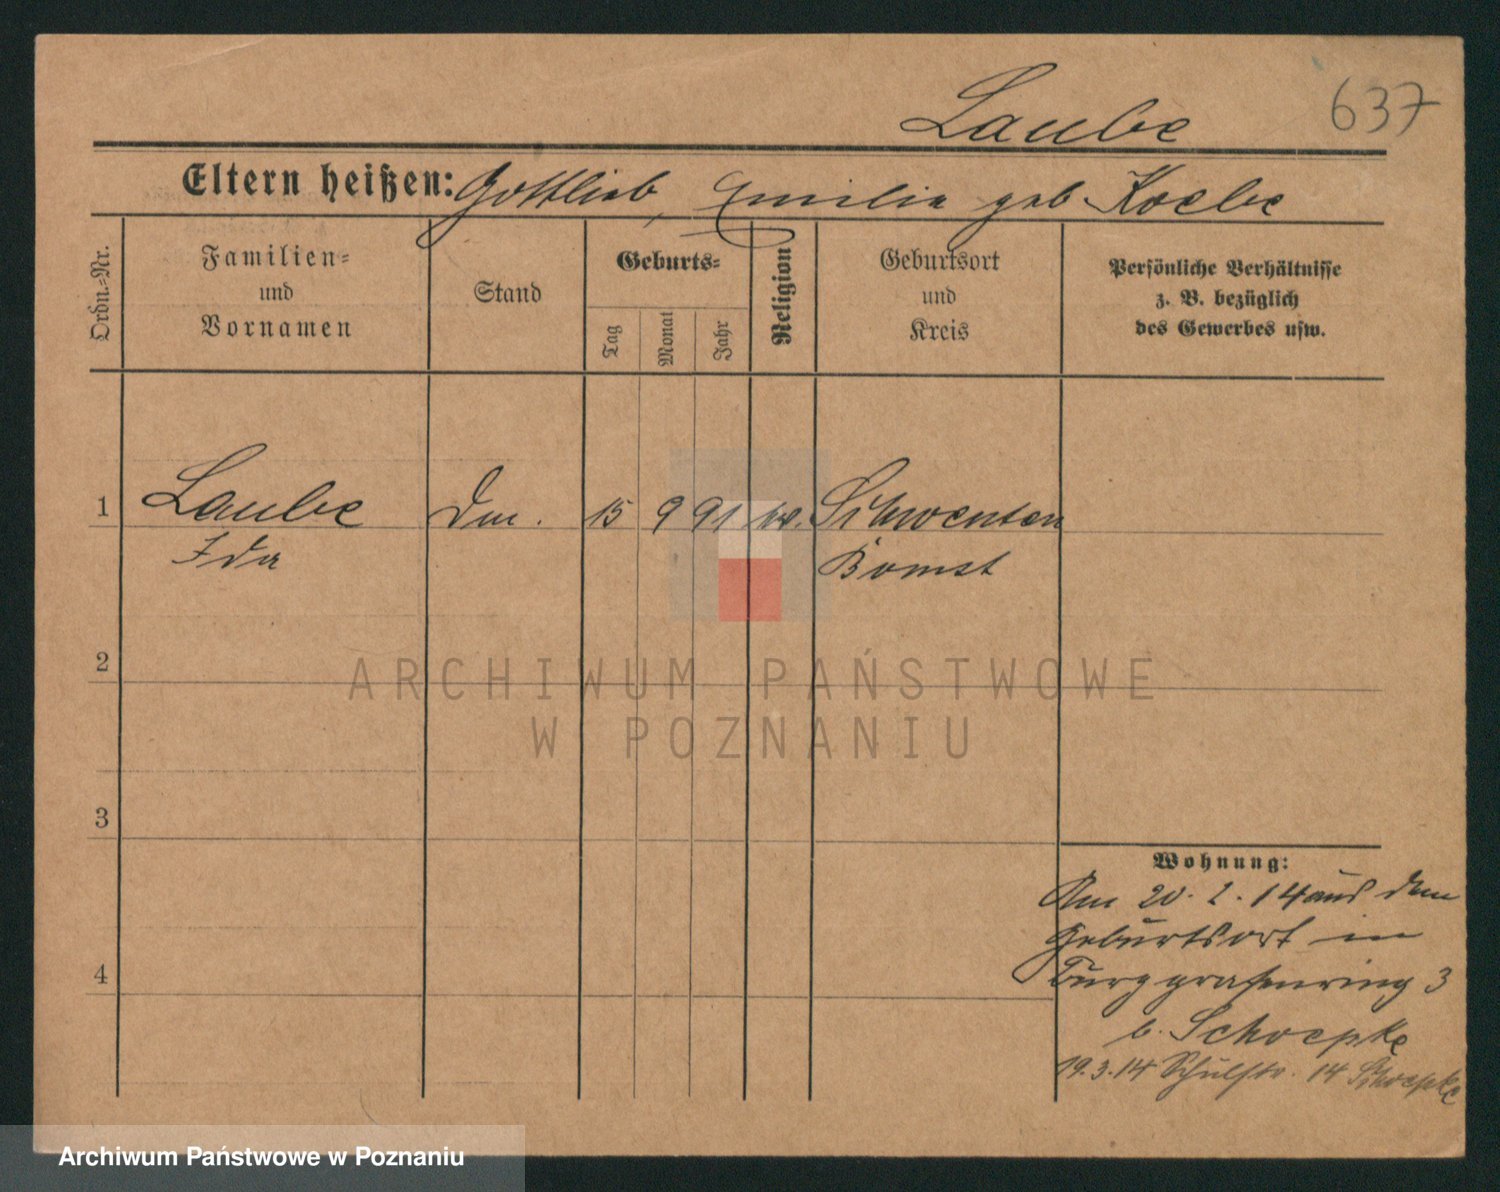 Laube 637
Eltern heißen: Gottlieb, Emilie geb. Koebe
Ordn.-Nr.
Familien-
und
Vornamen
Stand
Geburts-
Tag
Monat
Jahr
Religion
Geburtsort
und
Kreis
Persönliche Verhältnisse
z. B. bezüglich
des Gewerbes usw.
1 Laube 15 9 91 Schwenten
Ida Bomst
2
3
4
Wohnung:
Am 20. 2. 14 aus dem
Geburtsort in
Burggrafenring 3
b. Schoepke
19.3.14 Schulstr. 14 Schoepke
ARCHIWUM PAŃSTWOWE
W POZNANIU
Archiwum Państwowe w Poznaniu